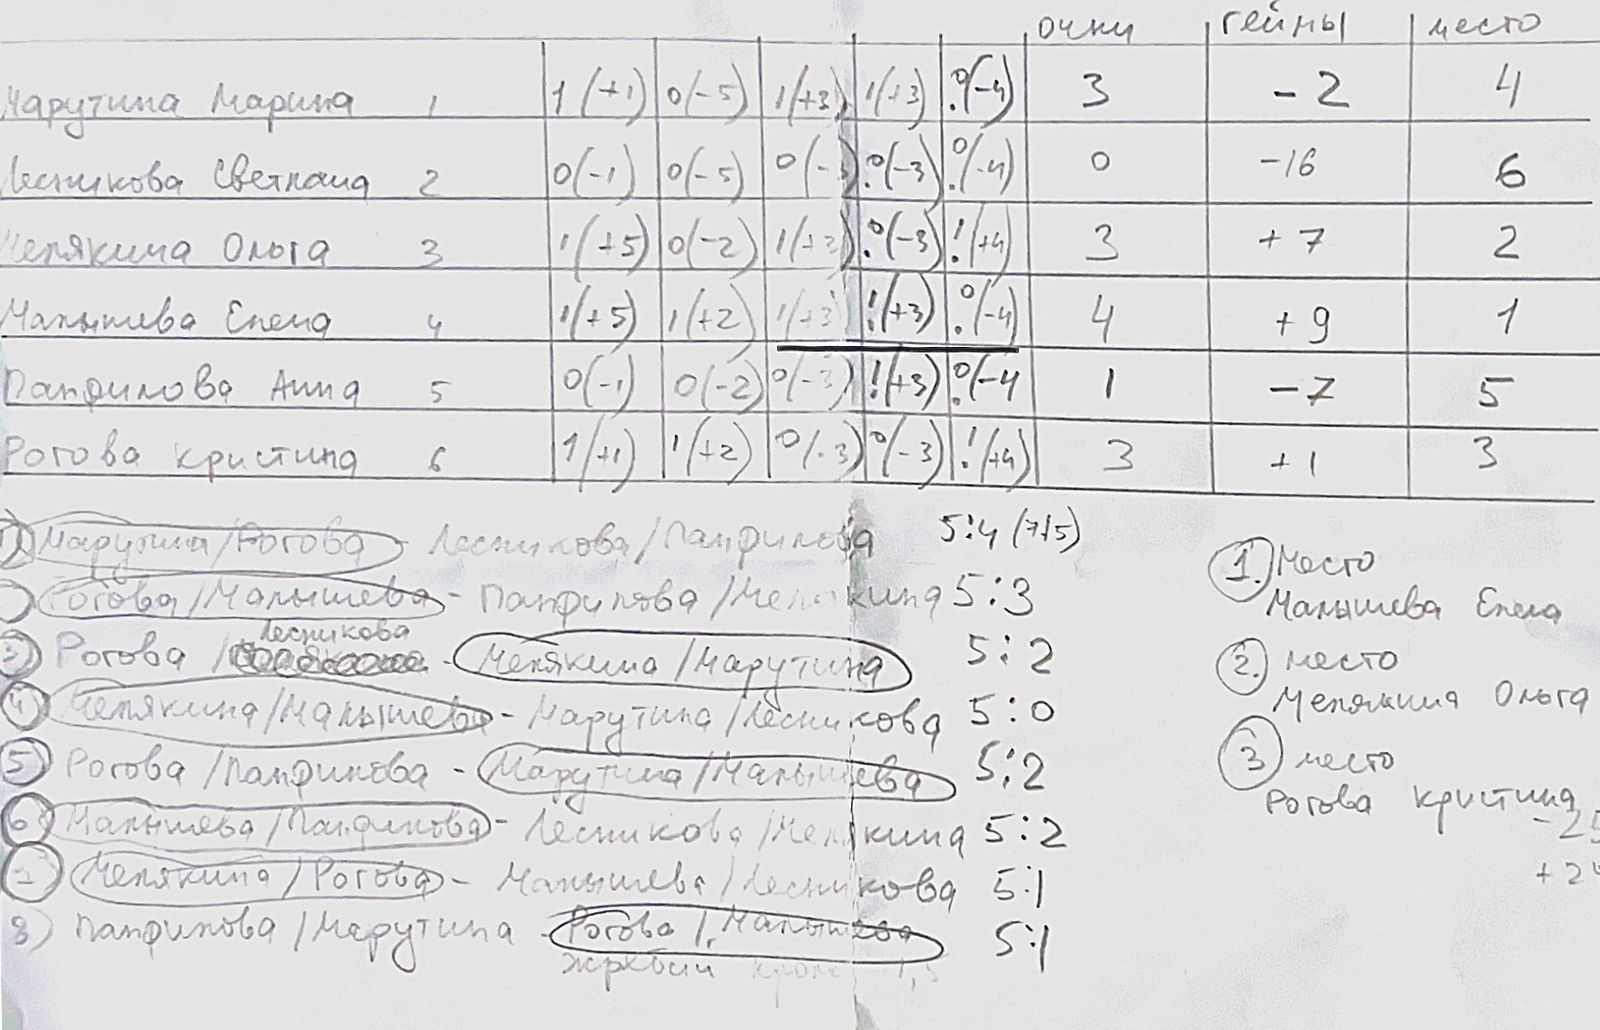 очки геймы место
Марутина Марина 1 1(+1) 0(-5) 1(+3) 1(+3) 0(-4) 3 -2 4
Лесникова Светлана 2 0(-1) 0(-5) 0(-3) 0(-3) 0(-4) 0 -16 6
Мелякина Ольга 3 1(+5) 0(-2) 1(+3) 0(-3) 1(+4) 3 +7 2
Малышева Елена 4 1(+5) 1(+2) 1(+3) 1(+3) 0(-4) 4 +9 1
Панфилова Анна 5 0(-1) 0(-2) 0(-3) 1(+3) 0(-4 1 -7 5
Рогова Кристина 6 1(+1) 1(+2) 0(-3) 0(-3) 1(+4) 3 +1 3
1) Марутина/Рогова - Лесникова/Панфилова 5:4 (7/5)
Рогова/Малышева - Панфилова/Мелякина 5:3
Лесникова
3) Рогова / - Мелякина/Марутина 5:2
4) Мелякина/Малышева - Марутина/Лесникова 5:0
5) Рогова/Панфилова - Марутина/Малышева 5:2
6) Малышева/Панфилова - Лесникова/Мелякина 5:2
7 Мелякина/Рогова - Малышева/Лесникова 5:1
8) Панфилова/Марутина - Рогова/Малышева 5:1
жребий
1. место
Малышева Елена
2. место
Мелякина Ольга
3 место
Рогова Кристина
-25
+24